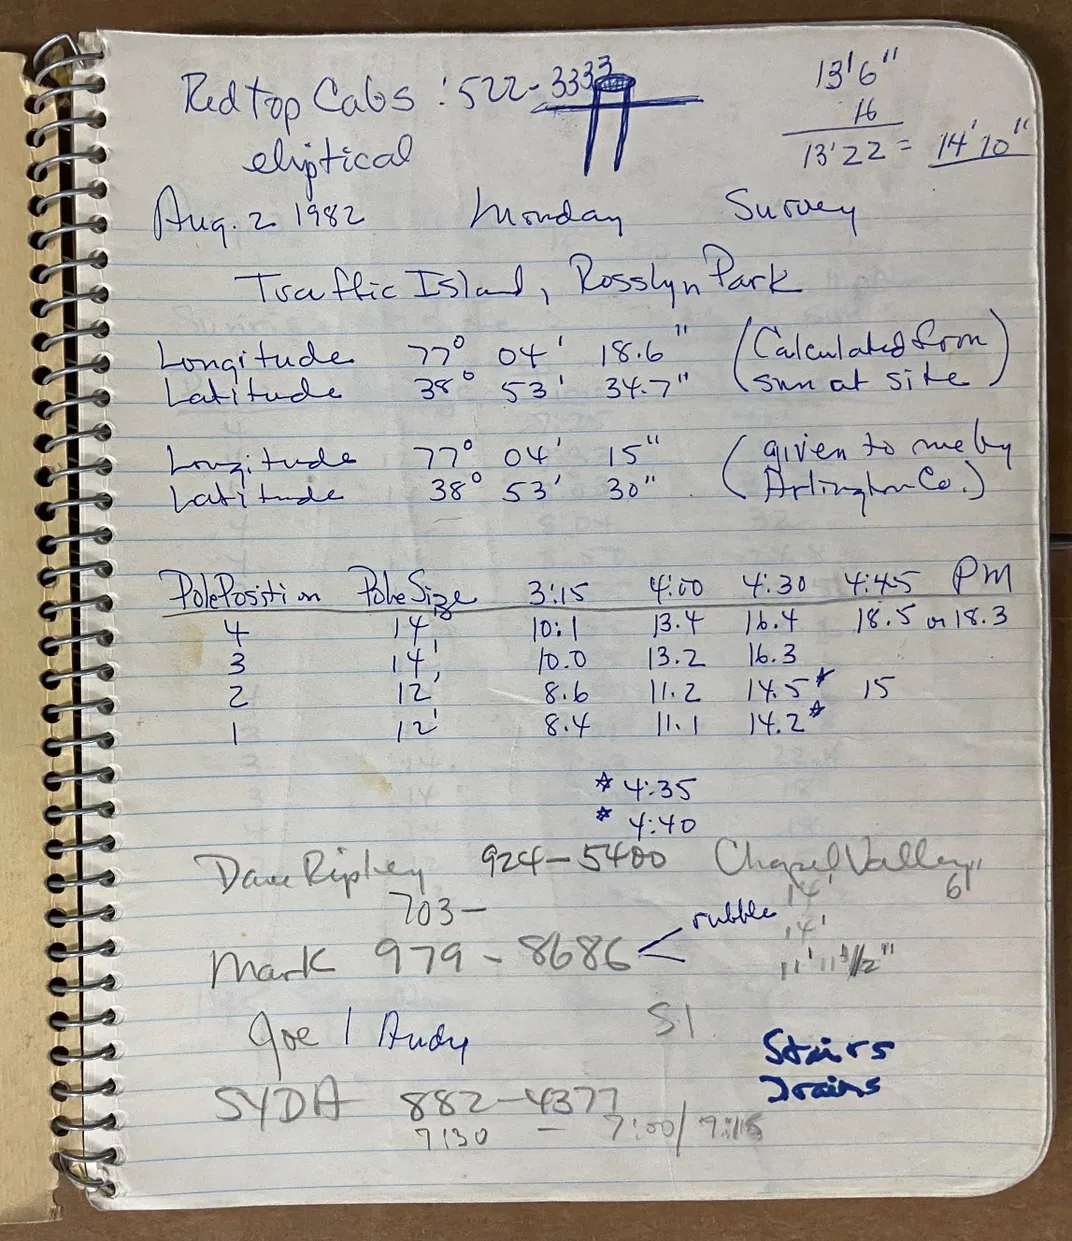 Red top Cabs : 522-3333
eliptical
13'6"
16
13'22 = 14'10"
Aug. 2 1982 Monday Survey
Traffic Island, Rosslyn Park
Longitude 77° 04' 18.6" (Calculated from
Latitude 38° 53' 34.7" sun at site)
Longitude 77° 04' 15" (given to me by
Latitude 38° 53' 30" Arlington Co.)
Pole Position Pole Size 3:15 4:00 4:30 4:45 PM
4 14' 10:1 13.4 16.4 18.5 or 18.3
3 14' 10.0 13.2 16.3
2 12' 8.6 11.2 14.5* 15
1 12' 8.4 11.1 14.2*
* 4:35
* 4:40
Dave Ripley 924-5400 Chapel Valley
6"
703-
14'
rubble
14'
Mark 979-8686
11' 11 1/2"
Joe / Andy S1
Stairs
Drains
SYDA 882-4377
7:30 - 7:00/7:15